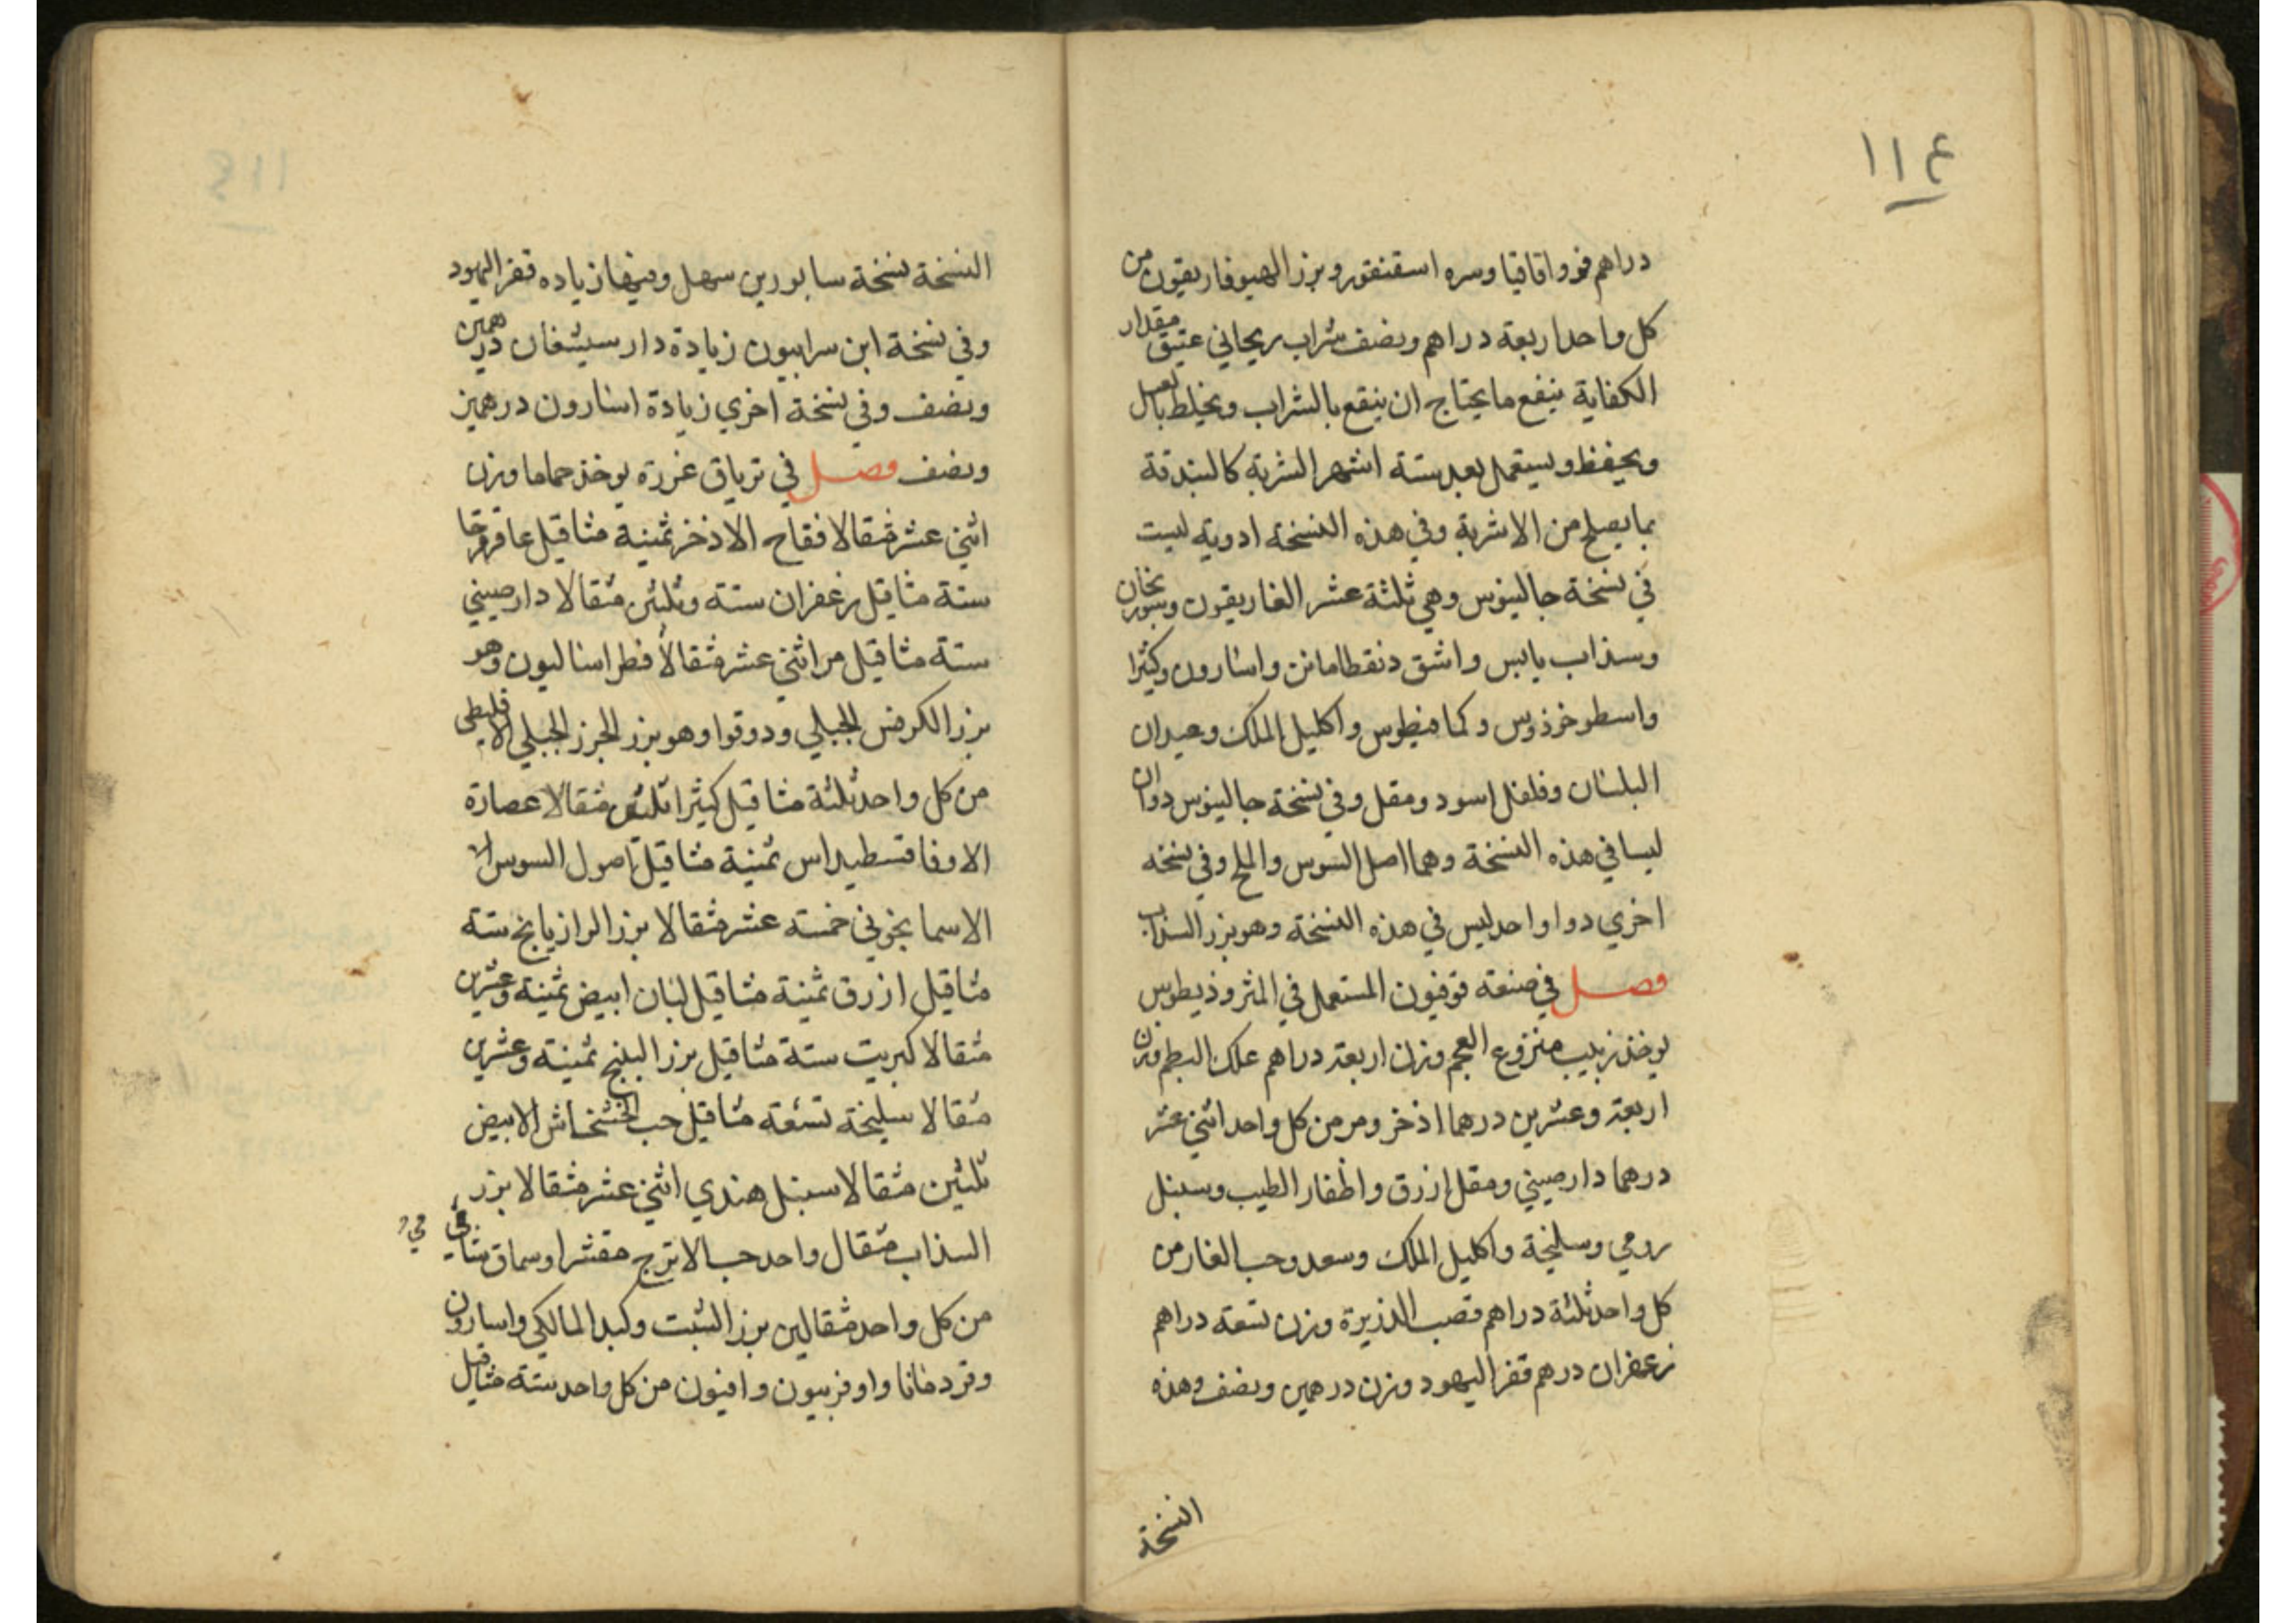 ١١٤
دراهم فو واقاقيا وسره اسقنقور وبزر الهيوفاريقون من
كل واحد اربعة دراهم ونصف شراب ريحاني عتيق مقدار
الكفاية ينقع ما يحتاج ان ينقع بالشراب ويخلط بالعسل
ويحفظ ويستعمل بعد ستة اشهر الشربة كالبندقة
بما يصلح من الاشربة وفي هذه النسخة ادوية ليست
في نسخة جالينوس وهي ثلثة عشر الغاريقون وسورنجان
وسذاب يابس واشق دنقطامانن واسارون وكثيرا
واسطوخوذوس وكمافيطوس واكليل الملك وعيدان
البلسان وفلفل اسود ومقل وفي نسخة جالينوس دواان
ليسا في هذه النسخة وهما اصل السوس والملح وفي نسخه
اخري دوا واحد ليس في هذه النسخة وهو بزر السذاب
فصل في صنعة قوفيون المستعمل في المثروذيطوس
يوخذ زبيب منزوع العجم وزن اربعة دراهم علك البطم وزن
اربعة وعشرين درهما اذخر ومر من كل واحد اثني عشر
درهما دارصيني ومقل ازرق واظفار الطيب وسنبل
رومي وسليخة واكليل الملك وسعد وحب الغار من
كل واحد ثلثة دراهم قصب الذريرة وزن تسعة دراهم
زعفران درهم قفر اليهود وزن درهمين ونصف وهذه
النسخة
النسخة نسخة سابور بن سهل وفيها زياده قفر اليهود
وفي نسخة ابن سرابيون زيادة دار سيشغان درهمين
ونصف وفي نسخة اخري زيادة اسارون درهمين
ونصف فصل في ترياق عزرة يوخذ حماما وزن
اثني عشر مثقالا فقاح الاذخر ثمنية مثاقيل عاقرقرحا
ستة مثاقيل زعفران ستة وثلثين مثقالا دارصيني
ستة مثاقيل مر اثني عشر مثقالا فطراساليون وهو
بزر الكرفس الجبلي ودوقوا وهو بزر الجزر الجبلي الاقليطي
من كل واحد ثلثة مثاقيل كثيرا ثلثين مثقالا عصارة
الاوفاقسطيداس ثمنية مثاقيل اصول السوس
الاسمانجوني خمسه عشر مثقالا بزر الرازيانج ستة
مثاقيل ازرق ثمنية مثاقيل لبان ابيض ثمنية وعشرين
مثقالا كبريت ستة مثاقيل بزر البنج ثمنية وعشرين
مثقالا سليخة تسعة مثاقيل حب الخشخاش الابيض
ثلثين مثقالا سنبل هندي اثني عشر مثقالا بزر
السذاب مثقال واحد حب الاترج مقشرا وسماق شامي
من كل واحد مثقالين بزر الشبت وكبد المالكي واسارون
وقردمانا واوفربيون وافيون من كل واحد ستة مثاقيل